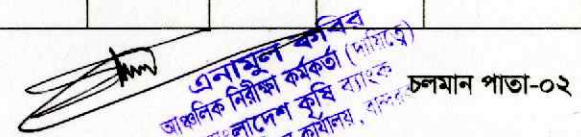 এনামুল কবির
আঞ্চলিক নিরীক্ষা কর্মকর্তা (দায়িত্বে)
বাংলাদেশ কৃষি ব্যাংক
কার্যালয়,
চলমান পাতা-০২